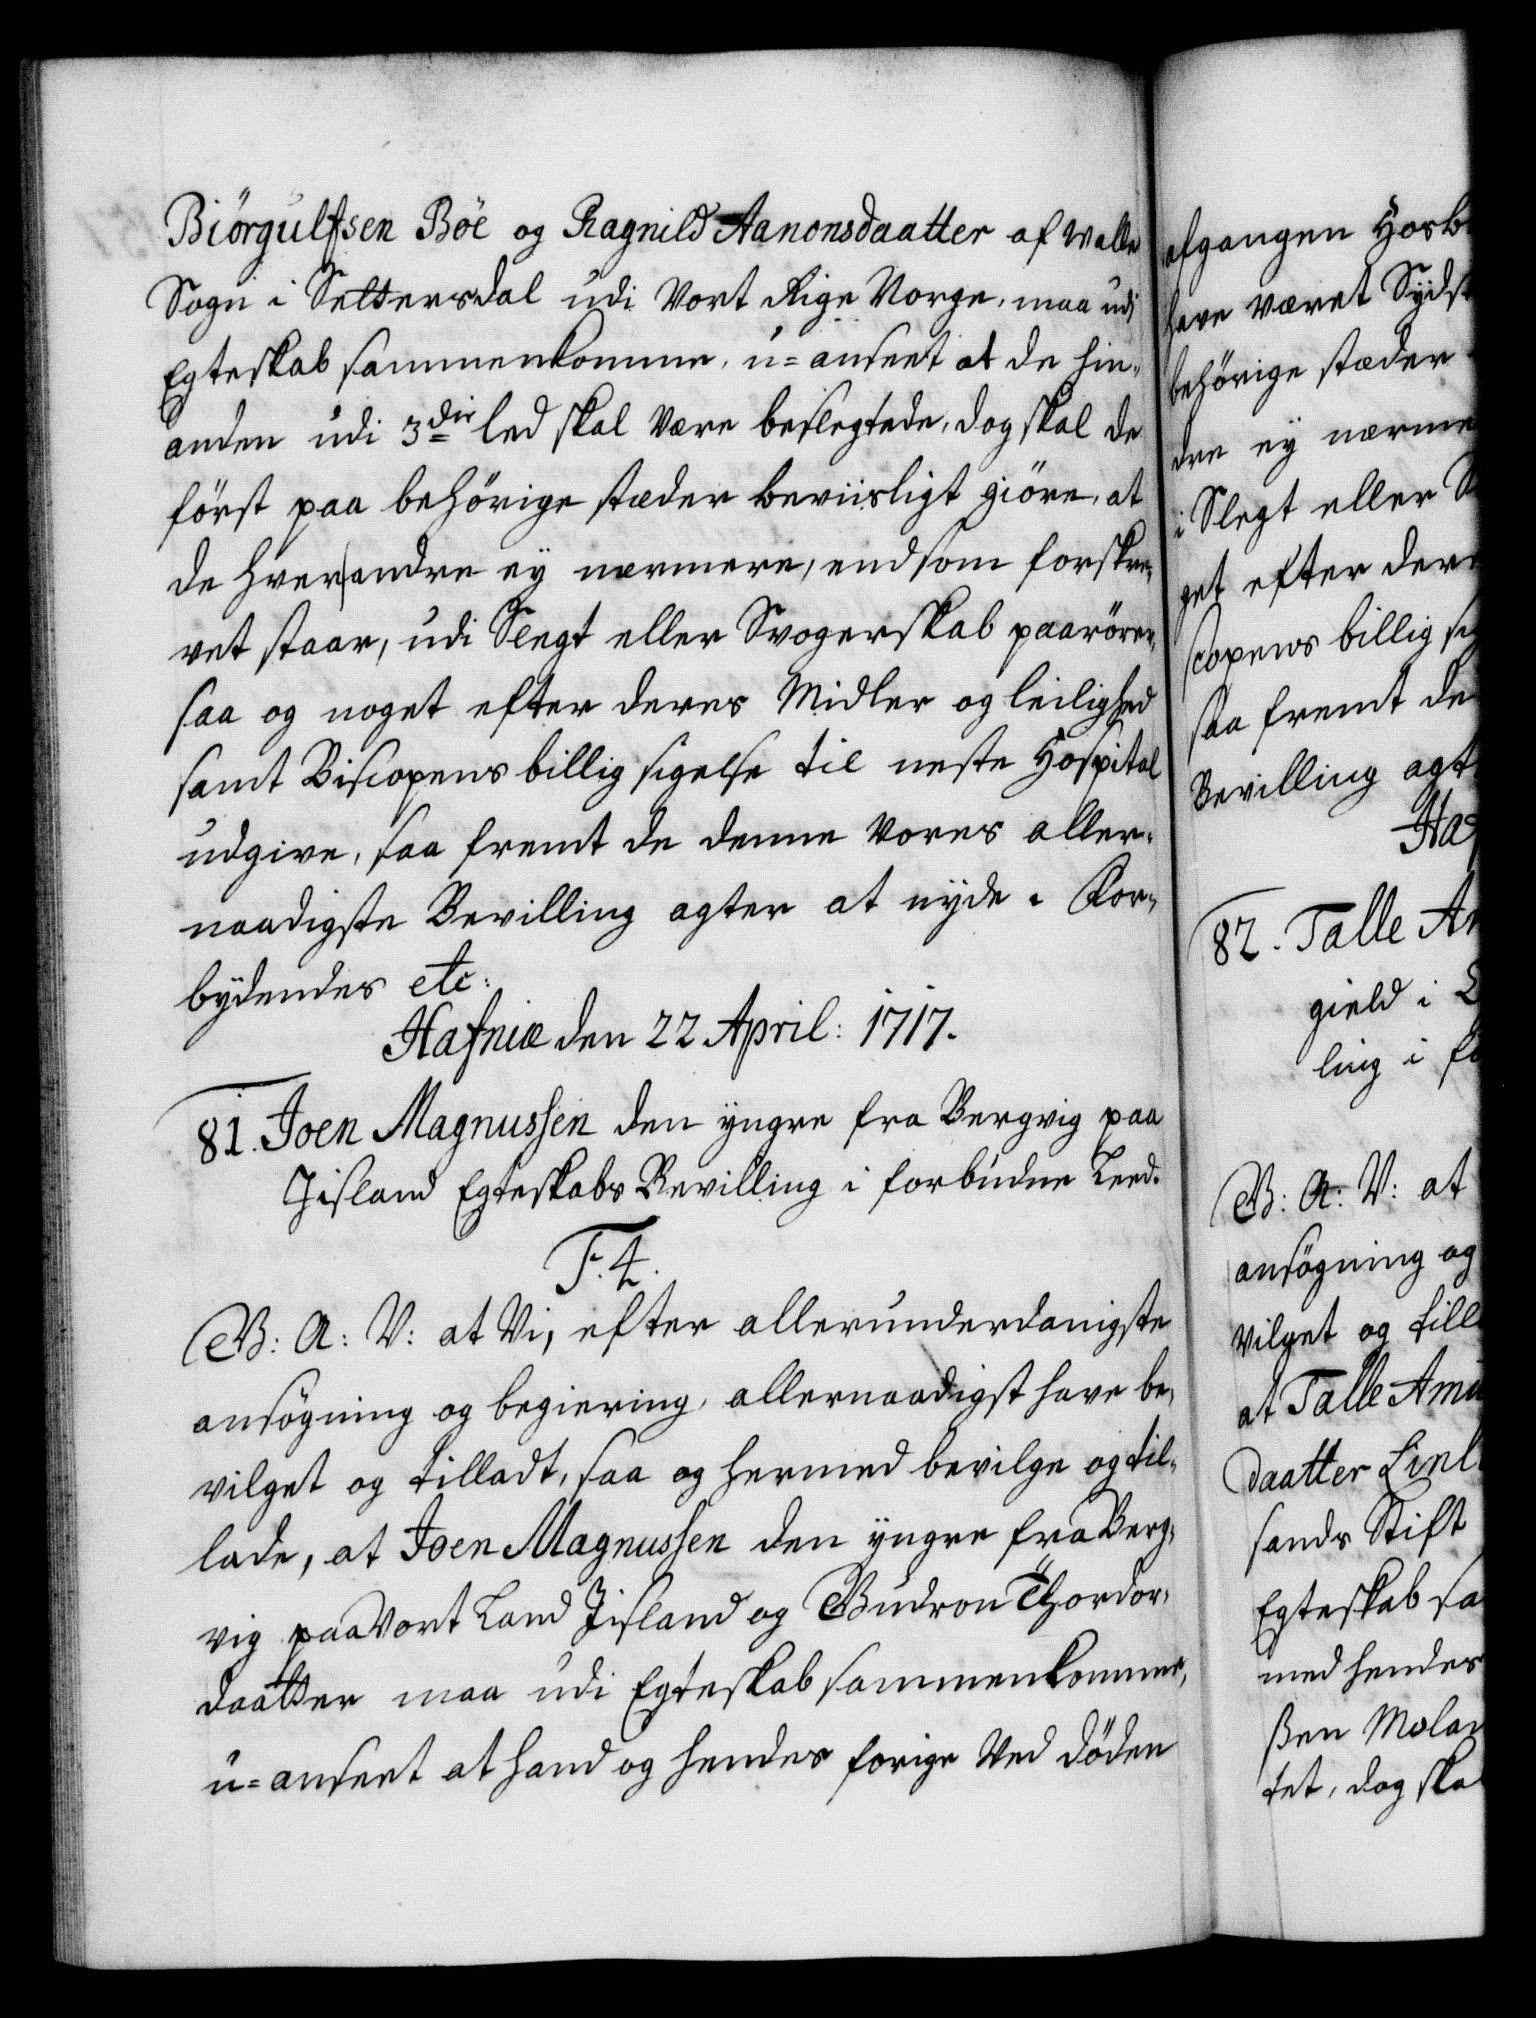 Biörgulfsen Böe og Ragnild Aanonsdaatter af Walle
Sogn i Settersdal udi Vort Rige Norge, maa udi
Egteskab sammenkomme, u=anseet at de hin-
anden udi 3die led skal være beslegtede, dog skal de
först paa behörige stæder beviisligt giöre, at
de hverandre ey nærmere, end som forskre-
vet staar, udi Slegt eller Svogerskab paarörer,
saa og noget efter deres Midler og leilighed
samt Biscopens billig sigelse til neste Hospital
udgive, saa fremt de denne Vores aller-
naadigste Bevilling agter at nyde. For-
bydendes etc:
Hafniæ den 22 April: 1717.
81. Joen Magnussen den yngre fra Bergvig paa
Jisland Egteskabs Bevilling i forbudne Leed.
F. 4.
G: A: V: at Vi, efter allerunderdanigste
ansögning og begiering, allernaadigst have be-
vilget og tilladt, saa og hermed bevilge og til-
lade, at Joen Magnussen den yngre fra Berg-
vig paa Vort Land Jisland og Gudron Thordor-
daatter maa udi Egteskab sammenkomme,
u=anseet at hand og hendes forige Ved döden
afgangen Hosb
have været Sydsk
behörige stæder
dre ey nærme
i Slegt eller S
get efter dere
scopens billig si
saa fremt de
Bevilling agt
Haf
82. Talle Am
gield i L
ling i fo
G: A: V: at
ansögning og
vilget og till
at Talle Amu
daatter Linl
sands Stift
Egteskab sa
med hendes
ßen Molan
tet, dog ska